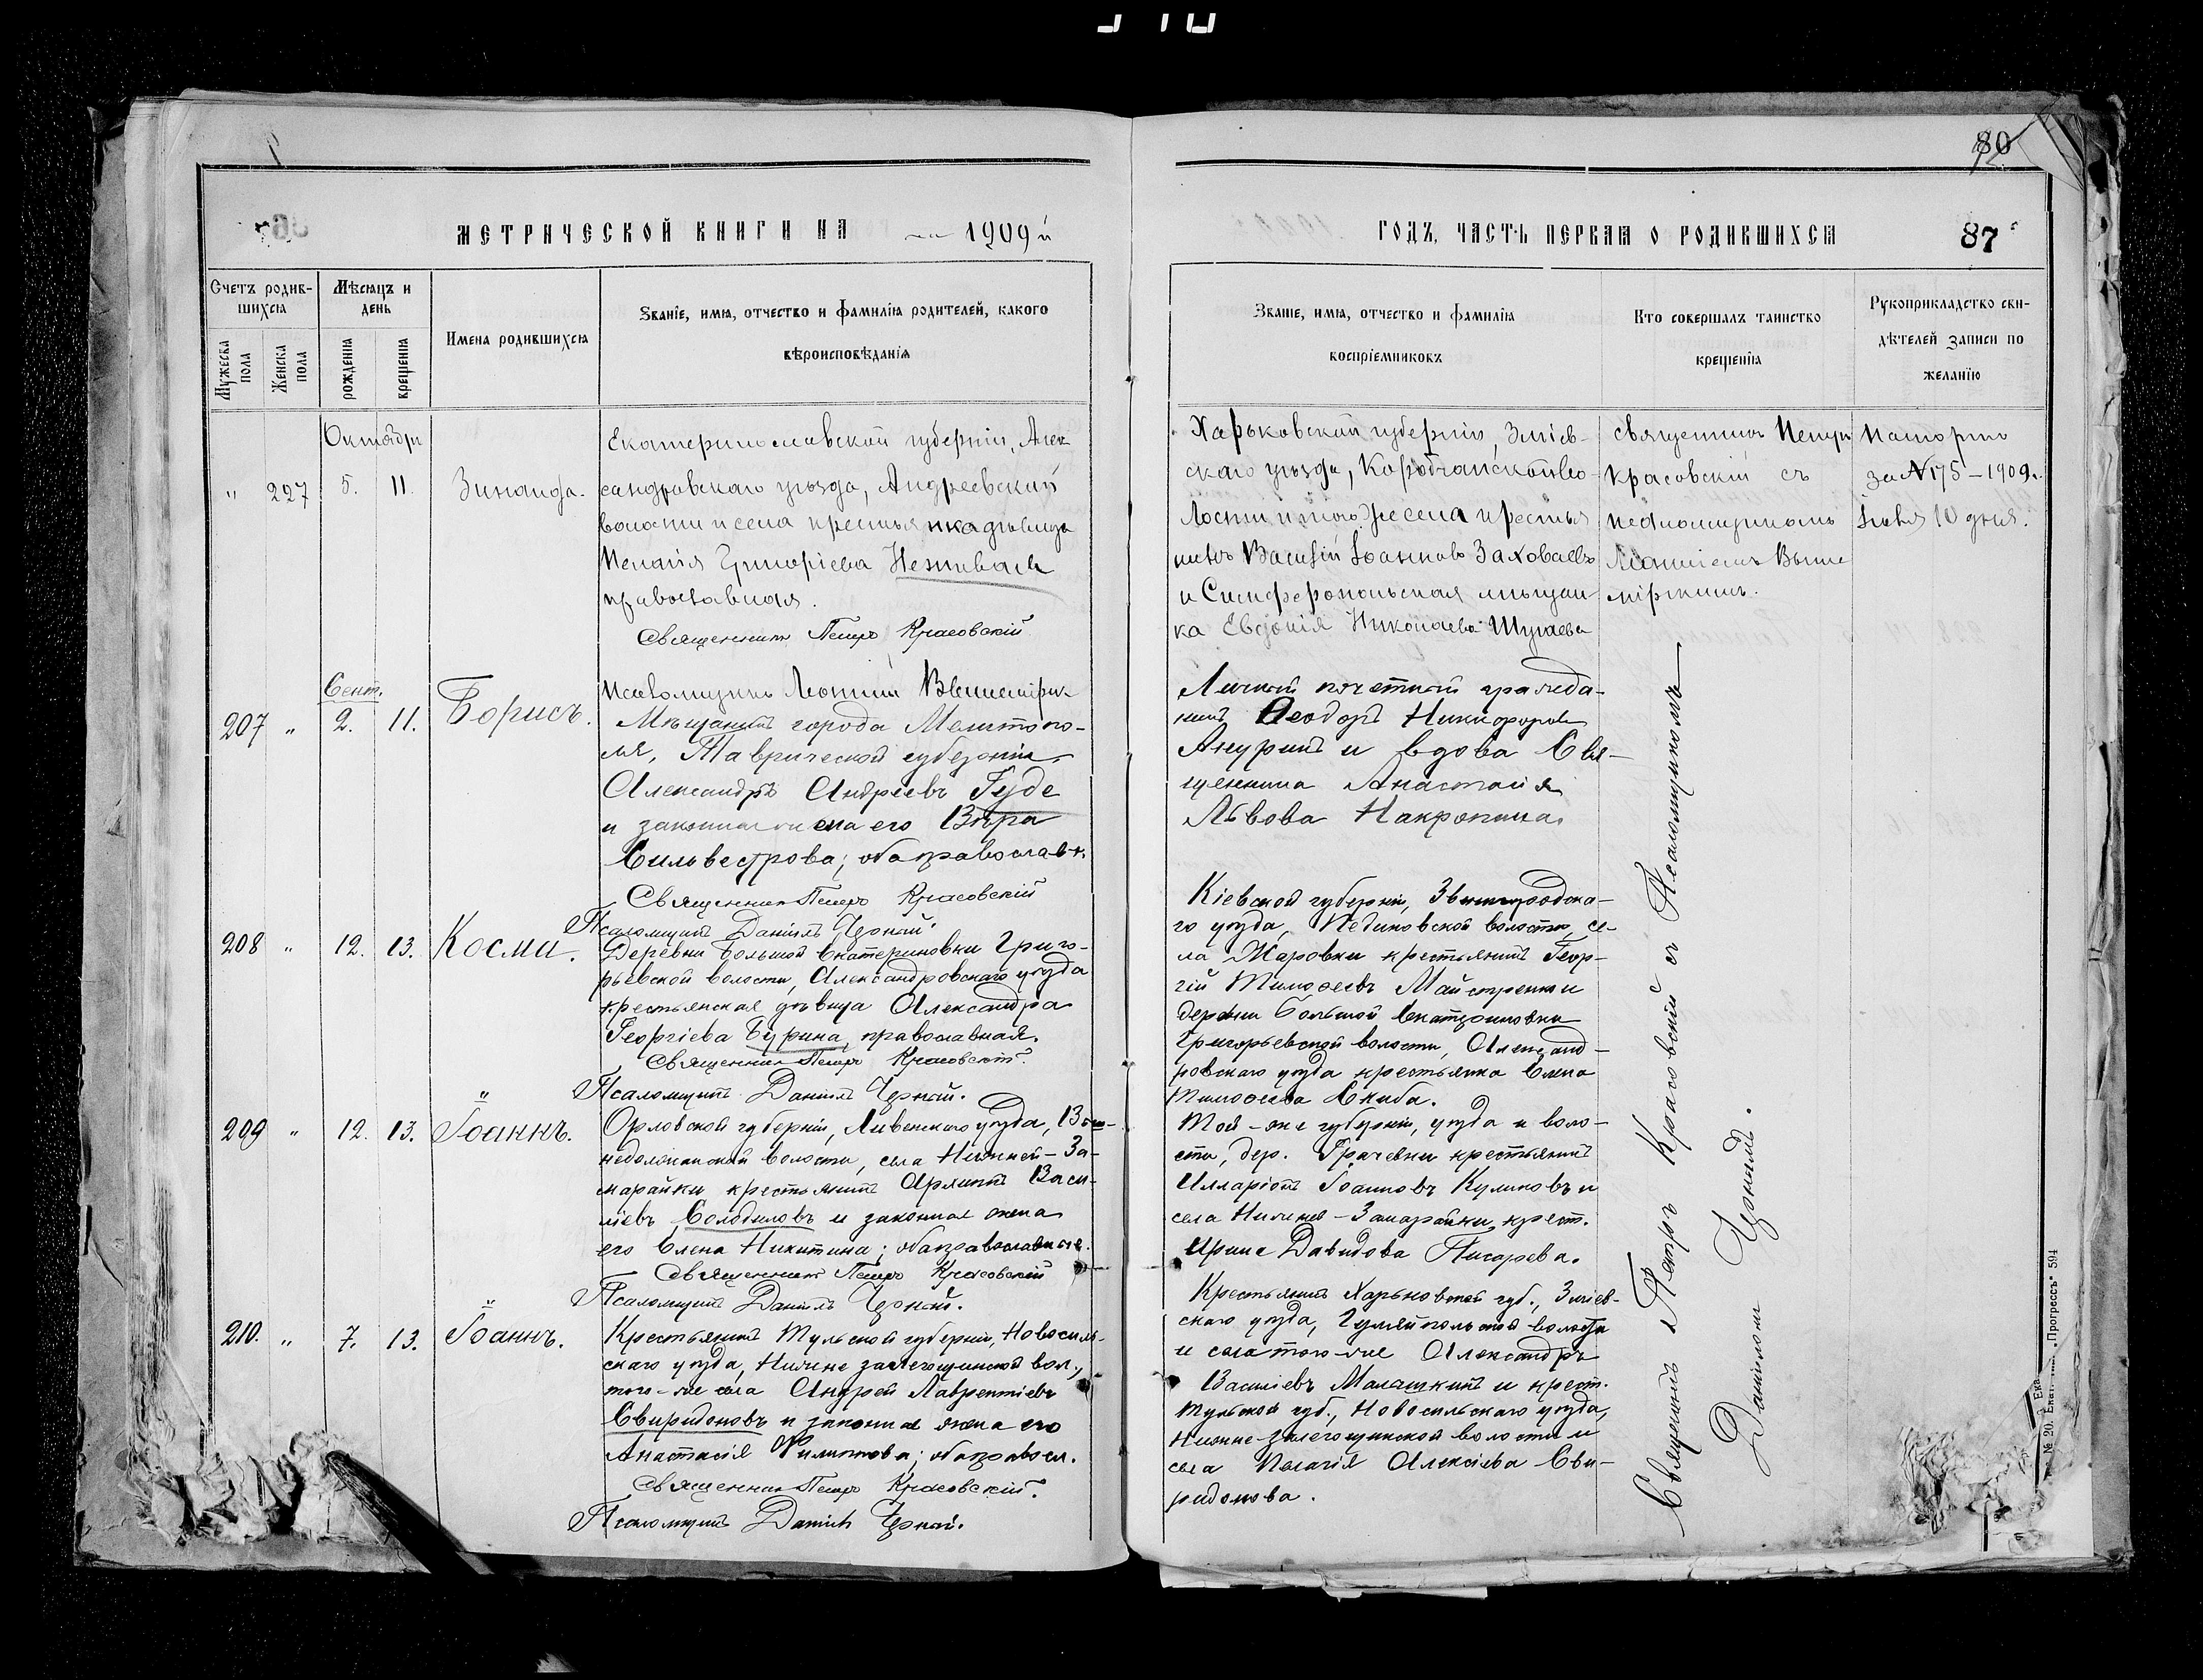 80
МЕТРИЧЕСКОЙ КНИГИ НА 1909 й
ГОДЪ, ЧАСТЬ ПЕРВАЯ О РОДИВШИХСЯ
87
Счетъ родив-
шихся
Мужеска
пола
Женска
пола
Мѣсяцъ и
день
рожденія
крещенія
Имена родившихся
Званіе, имя, отчество и фамилія родителей, какого
вѣроисповѣданія
Званіе, имя, отчество и фамилія
воспріемниковъ
Кто совершалъ таинство
крещенія
Рукоприкладство сви-
дѣтелей записи по
желанію
Октября
" 227 5. 11. Зинаида.
Екатеринославской губерніи, Алек
сандровскаго уѣзда, Андреевской
волости и села крестьянка дѣвица
Пелагія Григоріева
православная.
Священникъ Петръ Красовскій
Псаломщикъ Леонтій
Харьковской губерніи, Зміев-
скаго уѣзда, во-
лости и того же села крестья
нинъ Василій Іоанновъ Заховаевъ
и Симферопольская мѣщан-
ка Евдокія Николаева Шугаева
священникъ Петръ
Красовскій съ
псаломщикомъ
Леонтіемъ Выше
мірскимъ.
за № 175 – 1909г.
10 дня.
Сент.
207 " 2. 11. Борисъ.
Мѣщанинъ города Мелитопо-
ля, Таврической губерніи
Александръ Андреевъ Гуде
и законная жена его Вѣра
Сильвестрова; оба православн.
Священникъ Петръ Красовскій
Псаломщикъ Даніилъ Черный.
Личный почетный гражда-
нинъ Ѳеодоръ Никифоровъ
и вдова Свя-
щенника Анастасія
Львова
208 " 12. 13. Косма.
Деревни Большой Екатериновки Григо-
рьевской волости, Александровскаго уѣзда
крестьянская дѣвица Александра
Георгіева Бурина, православная.
Священникъ Петръ Красовскій
Псаломщикъ Даніилъ Черный.
Кіевской губерніи, Звенигородска-
го уѣзда, волости, се-
ла крестьянинъ Геор-
гій Тимоѳеевъ Майстренко и
деревни Большой Екатериновки
Григорьевской волости, Александ-
ровскаго уѣзда крестьянка Елена
Тимоѳеева Скиба.
"
209 " 12. 13. Іоаннъ.
Орловской губерніи, Ливенскаго уѣзда,
волости, села Нижней-За-
марайки крестьянинъ Васи-
ліевъ Солодиловъ и законная жена
его Елена Никитина; оба православные.
Священникъ Петръ Красовскій
Псаломщикъ Даніилъ Черный.
Той-же губерніи, уѣзда и воло-
сти, дер. Грачевки крестьянинъ
Илларіонъ Іоанновъ Куликовъ и
села Нижней-Замарайки, крест.
Ирина Давидова Писарева.
"
210. " 7. 13. Іоаннъ.
Крестьянинъ Тульской губерніи, Новосиль-
скаго уѣзда, Нижне залегощинской вол.,
того-же села Андрей Лаврентіевъ
Свиридоновъ и законная жена его
Анастасія Филиппова; оба правосл.
Священникъ Петръ Красовскій.
Псаломщикъ Даніилъ Черный.
Крестьянинъ Харьковской губ., Зміев-
скаго уѣзда, волости
и села того-же Александръ
Василіевъ Малашкинъ и крест.
Тульской губ., Новосильскаго уѣзда,
Нижне-залегощинской волости и
села Пелагія Алексіева Сви-
ридонова.
Священникъ Петръ Красовскій съ Псаломщикомъ
Даніиломъ Чернымъ.
"Прогрессъ" 594
№ 20.